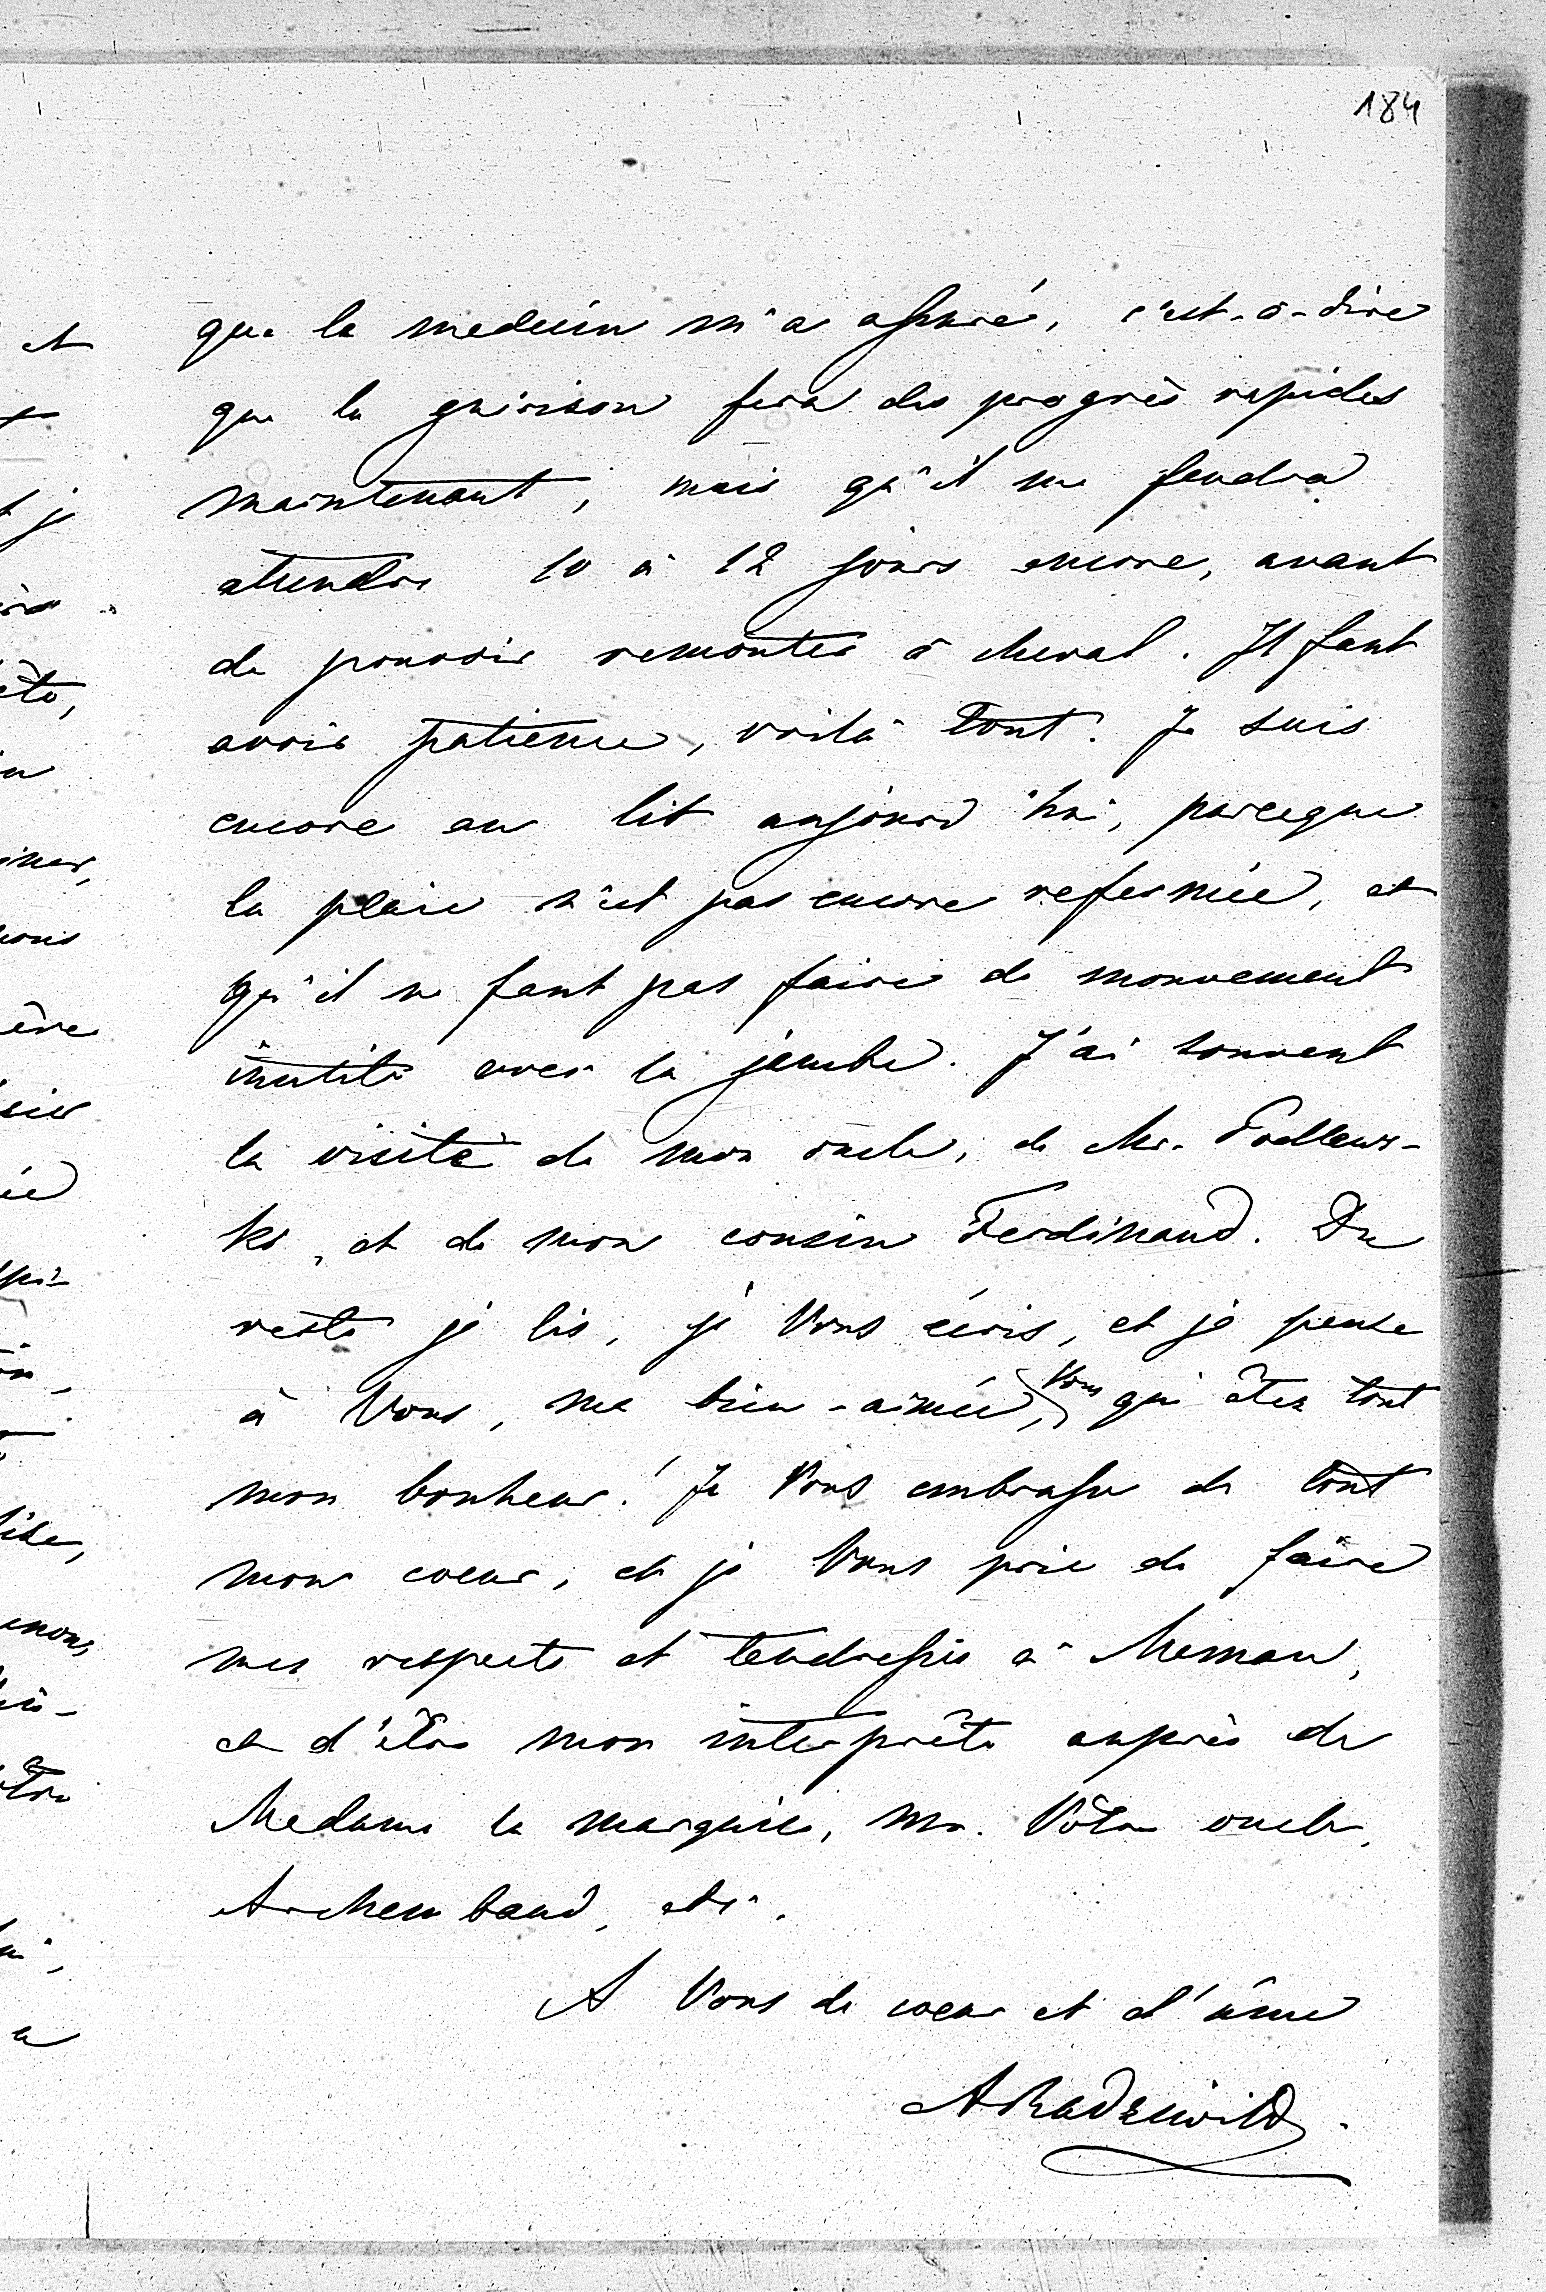 184
que le medecin m'a assuré, c'est-à-dire
que la guérison fera des progrès rapides
maintenant, mais qu'il me faudra
attendre 10 à 12 jours encore, avant
de pouvoir remonter à cheval. Il faut
avoir patience, voilà tout. Je suis
encore au lit aujourd'hui, parceque
la plaie n'est pas encore refermée, et
qu'il ne faut pas faire de mouvement
inutile avec la jambe. J'ai souvent
la visite de mon oncle, de Mr.
et de mon cousin Ferdinand. Du
reste je lis, je Vous écris, et je pense
à Vous, ma bien-aimée, Vous qui êtes tout
mon bonheur! Je Vous embrasse de tout
mon coeur, et je Vous prie de faire
mes respects et tendresses à Maman,
et d'être mon interprête auprès de
Madame la marquise, Mr. Vôtre oncle,
Archembaud, etc.
A Vous de coeur et d'âme
ARadziwill.